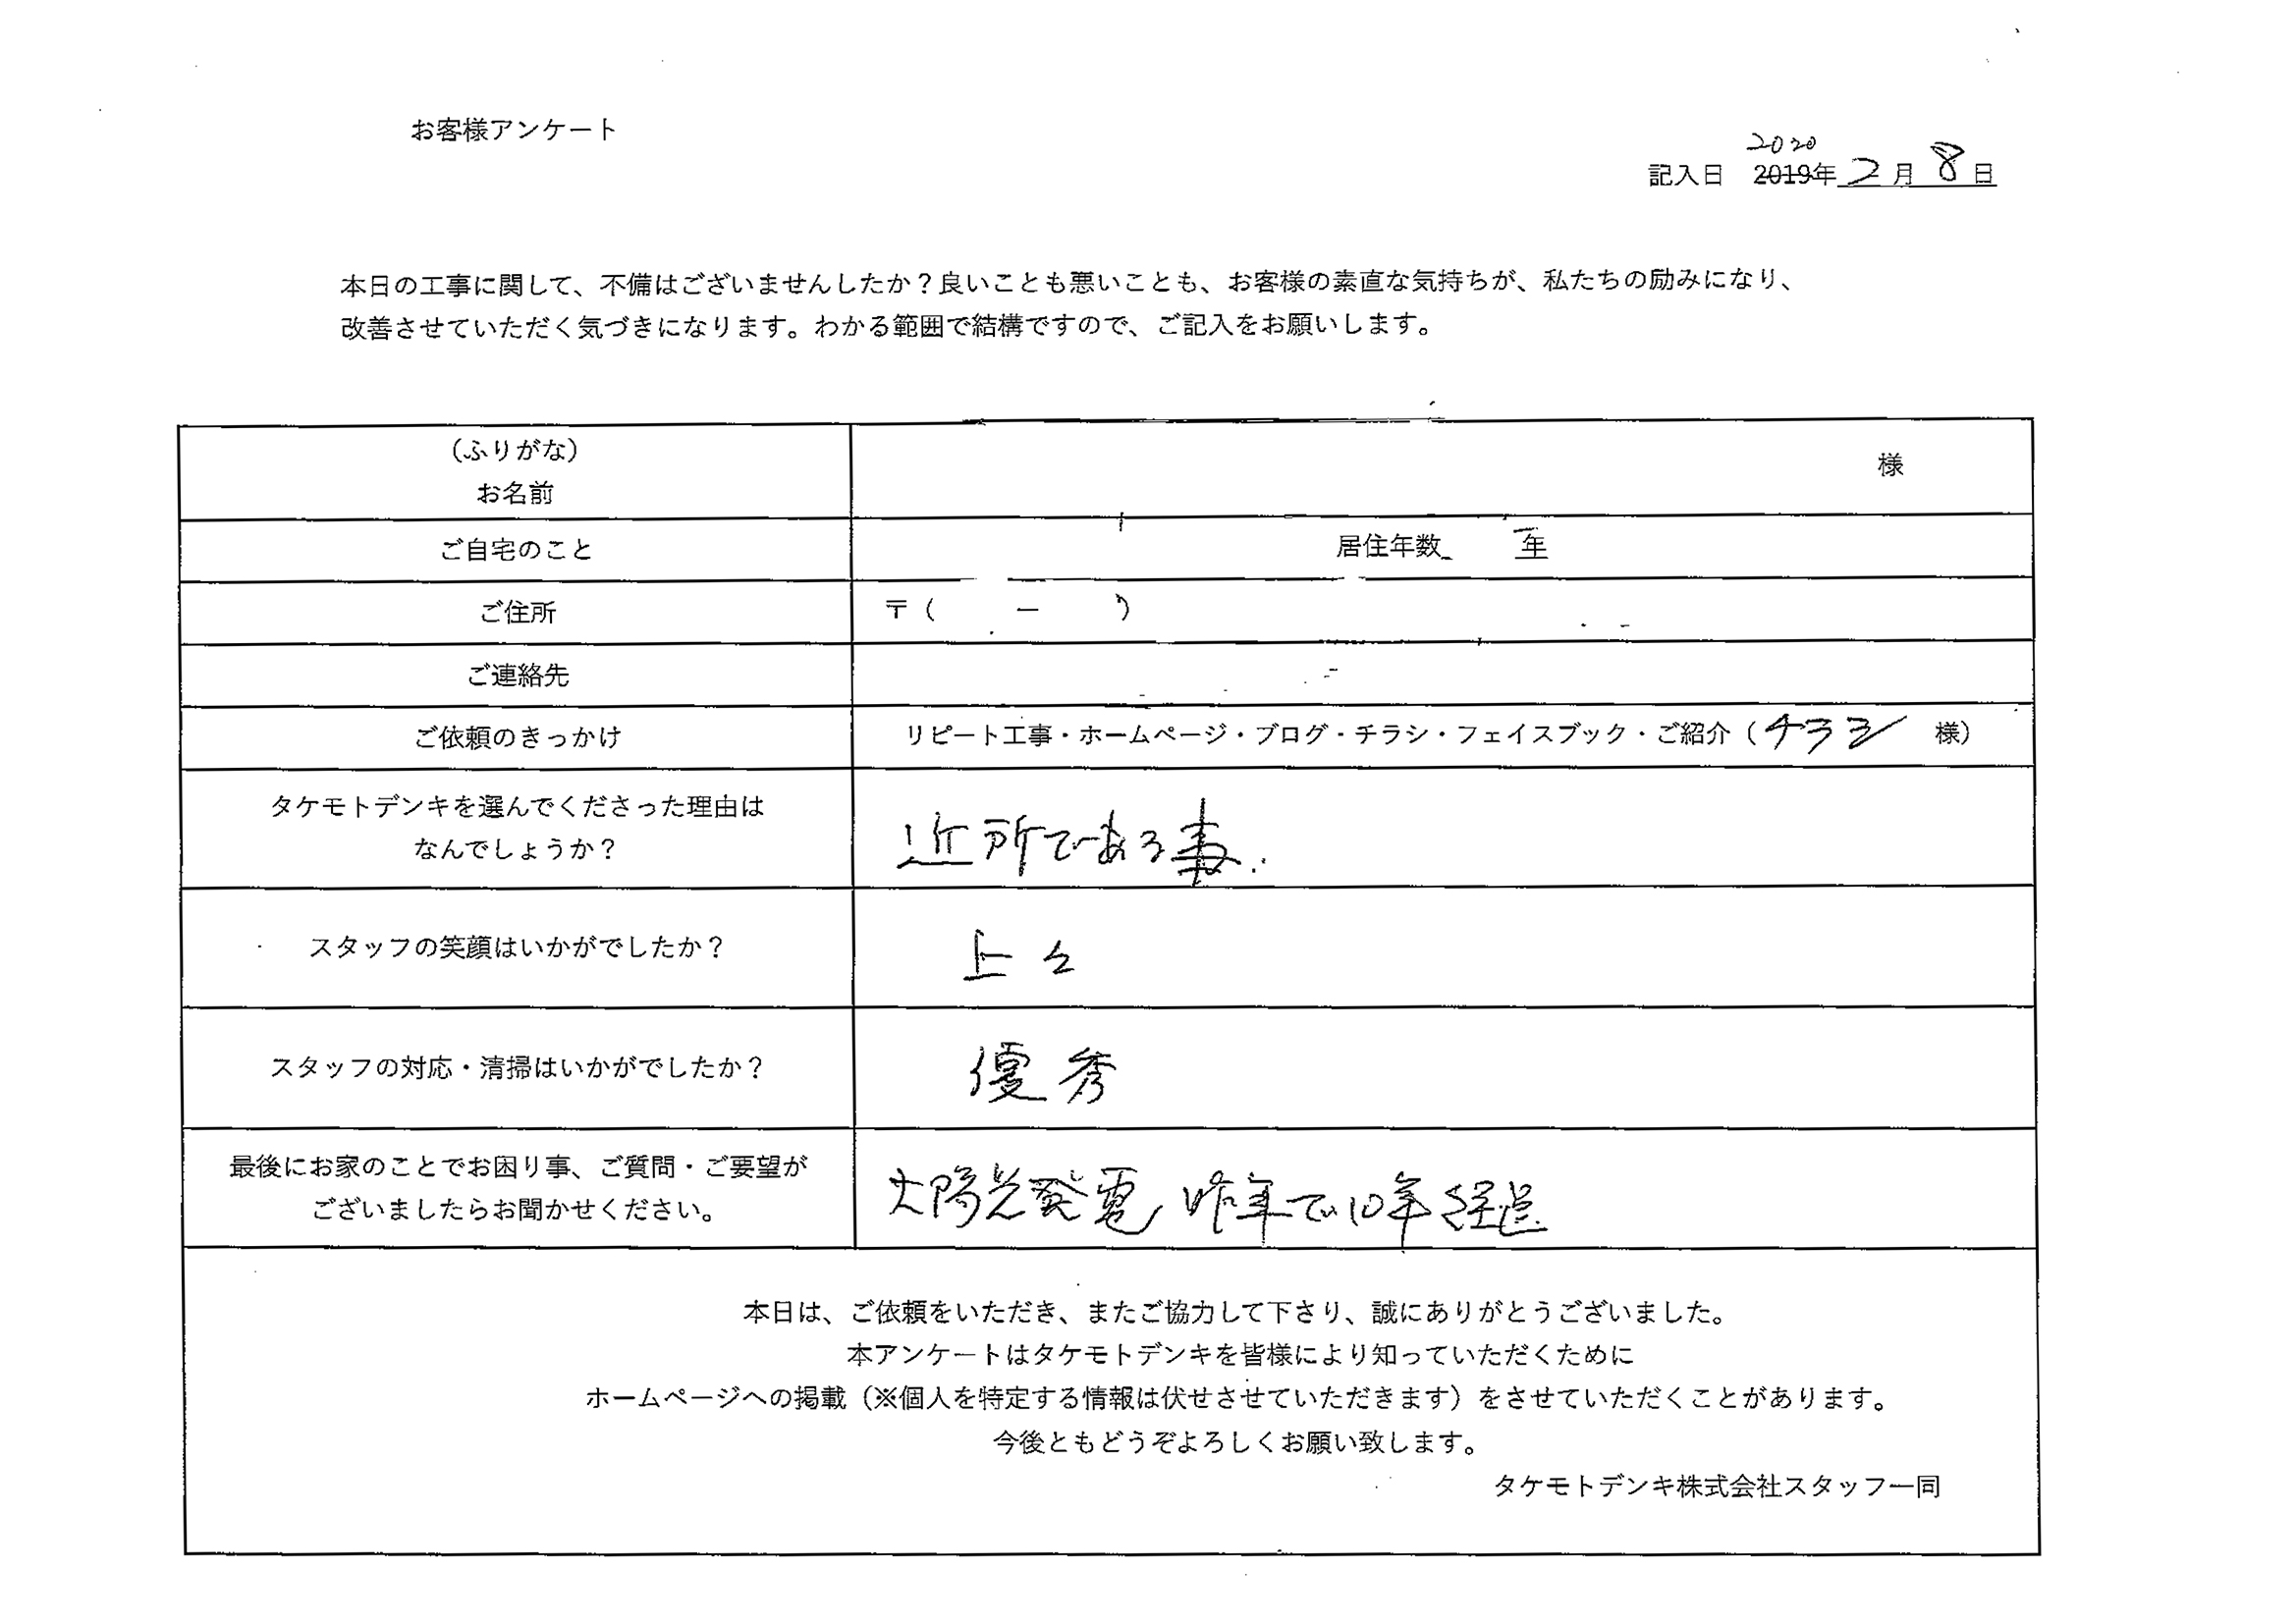 お客様アンケート
2020
記入日 2019年 2月 8日
本日の工事に関して、不備はございませんしたか？良いことも悪いことも、お客様の素直な気持ちが、私たちの励みになり、
改善させていただく気づきになります。わかる範囲で結構ですので、ご記入をお願いします。
（ふりがな）
お名前
様
ご自宅のこと 居住年数 年
ご住所 〒（ ー ）
ご連絡先
ご依頼のきっかけ リピート工事・ホームページ・ブログ・チラシ・フェイスブック・ご紹介（チラシ 様）
タケモトデンキを選んでくださった理由は
なんでしょうか？
近所である事.
スタッフの笑顔はいかがでしたか？ 上々
スタッフの対応・清掃はいかがでしたか？ 優秀
最後にお家のことでお困り事、ご質問・ご要望が
ございましたらお聞かせください。
太陽光発電 昨年で10年経過
本日は、ご依頼をいただき、またご協力して下さり、誠にありがとうございました。
本アンケートはタケモトデンキを皆様により知っていただくために
ホームページへの掲載（※個人を特定する情報は伏せさせていただきます）をさせていただくことがあります。
今後ともどうぞよろしくお願い致します。
タケモトデンキ株式会社スタッフ一同